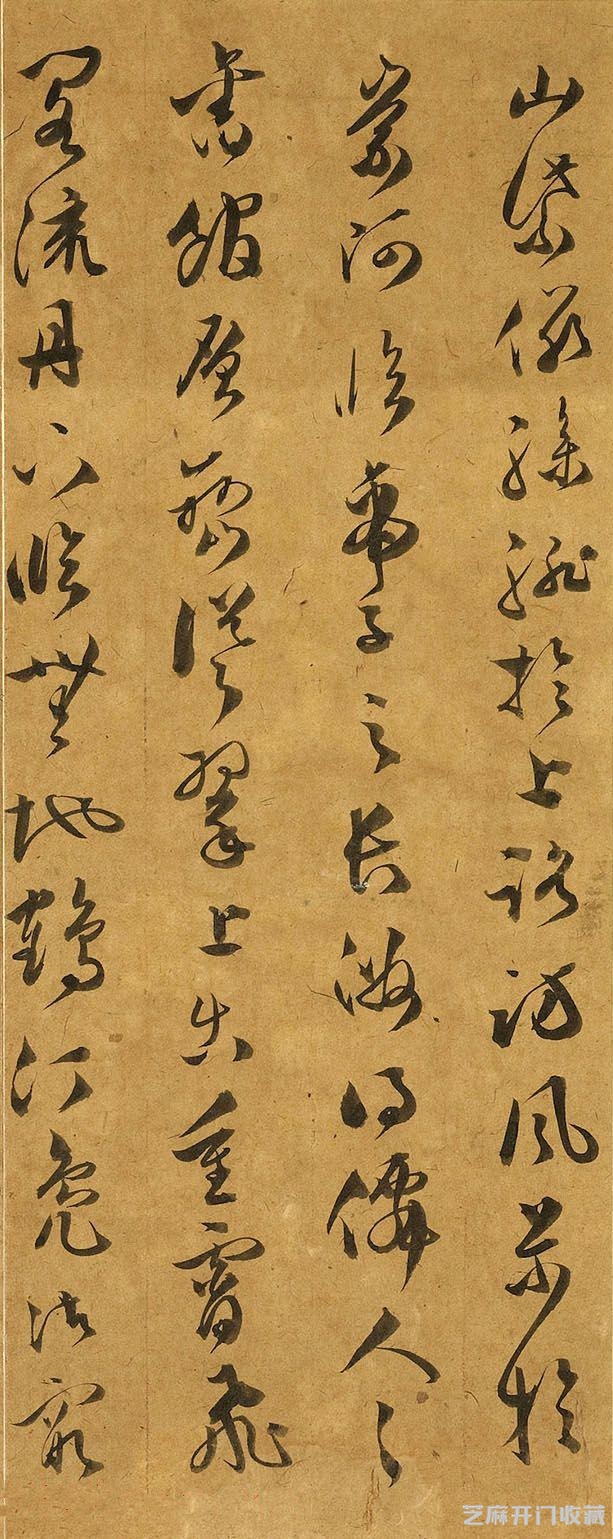 山紫儼驂騑於上路訪風景於
崇阿臨帝子之長洲得僊人之
舊館層巒聳翠上出重霄飛
閣流丹下臨無地鶴汀鳧渚窮
芝麻开门收藏